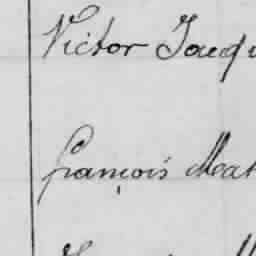 Victor Jacqu
François Mat